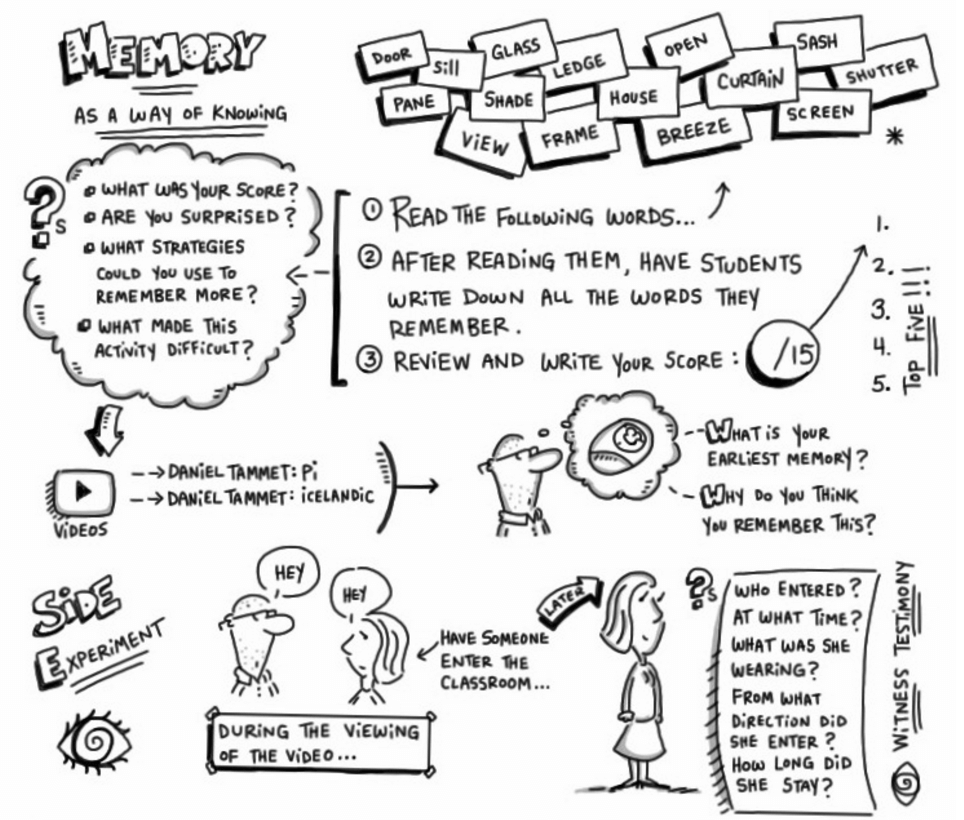 MEMORY
AS A WAY OF KNOWING
DOOR
Sill
GLASS
LEDGE
OPEN
SASH
SHUTTER
PANE
SHADE
HOUSE
CURTAIN
SCREEN
VIEW
FRAME
BREEZE
*
?s
WHAT WAS YOUR SCORE?
ARE YOU SURPRISED?
WHAT STRATEGIES
COULD YOU USE TO
REMEMBER MORE?
WHAT MADE THIS
ACTIVITY DIFFICULT?
① READ THE FOLLOWING WORDS...
② AFTER READING THEM, HAVE STUDENTS
WRITE DOWN ALL THE WORDS THEY
REMEMBER.
③ REVIEW AND WRITE YOUR SCORE:
/15
1.
2.
3.
4.
5.
TOP FIVE!!!
VIDEOS
DANIEL TAMMET: Pi
DANIEL TAMMET: ICELANDIC
WHAT IS YOUR
EARLIEST MEMORY?
WHY DO YOU THINK
YOU REMEMBER THIS?
SIDE
EXPERIMENT
HEY
HEY
DURING THE VIEWING
OF THE VIDEO...
HAVE SOMEONE
ENTER THE
CLASSROOM...
LATER
?s
WHO ENTERED?
AT WHAT TIME?
WHAT WAS SHE
WEARING?
FROM WHAT
DIRECTION DID
SHE ENTER?
HOW LONG DID
SHE STAY?
WITNESS TESTIMONY